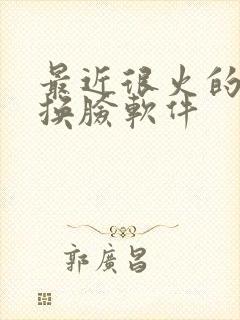 最近很火的
换臉軟件
郭廣昌